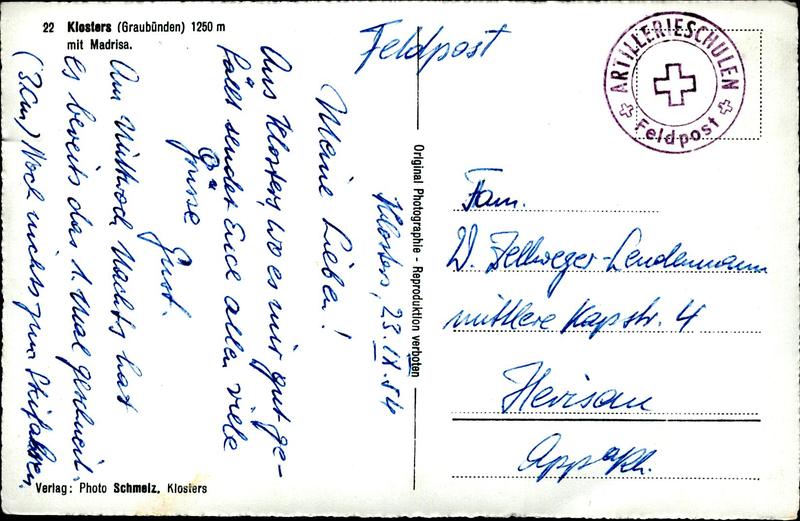 22 Klosters (Graubünden) 1250 m
mit Madrisa.
Feldpost
ARTILLERIESCHULEN
Feldpost
Klosters, 23.IX.54
Meine Lieben!
Aus Klosters, wo es mir gut ge-
fällt sendet Euch allen viele
Grüsse
Gust.
Am Mittwoch Nachts hat
es bereits das 1. Mal geschneit.
(3cm) Noch nichts zum Skifahren.
Original Photographie - Reproduktion verboten
Fam.
W. Zellweger-Lendenmann
mittlere Kapstr. 4
Herisau
App. a/Rh.
Verlag: Photo Schmelz, Klosters